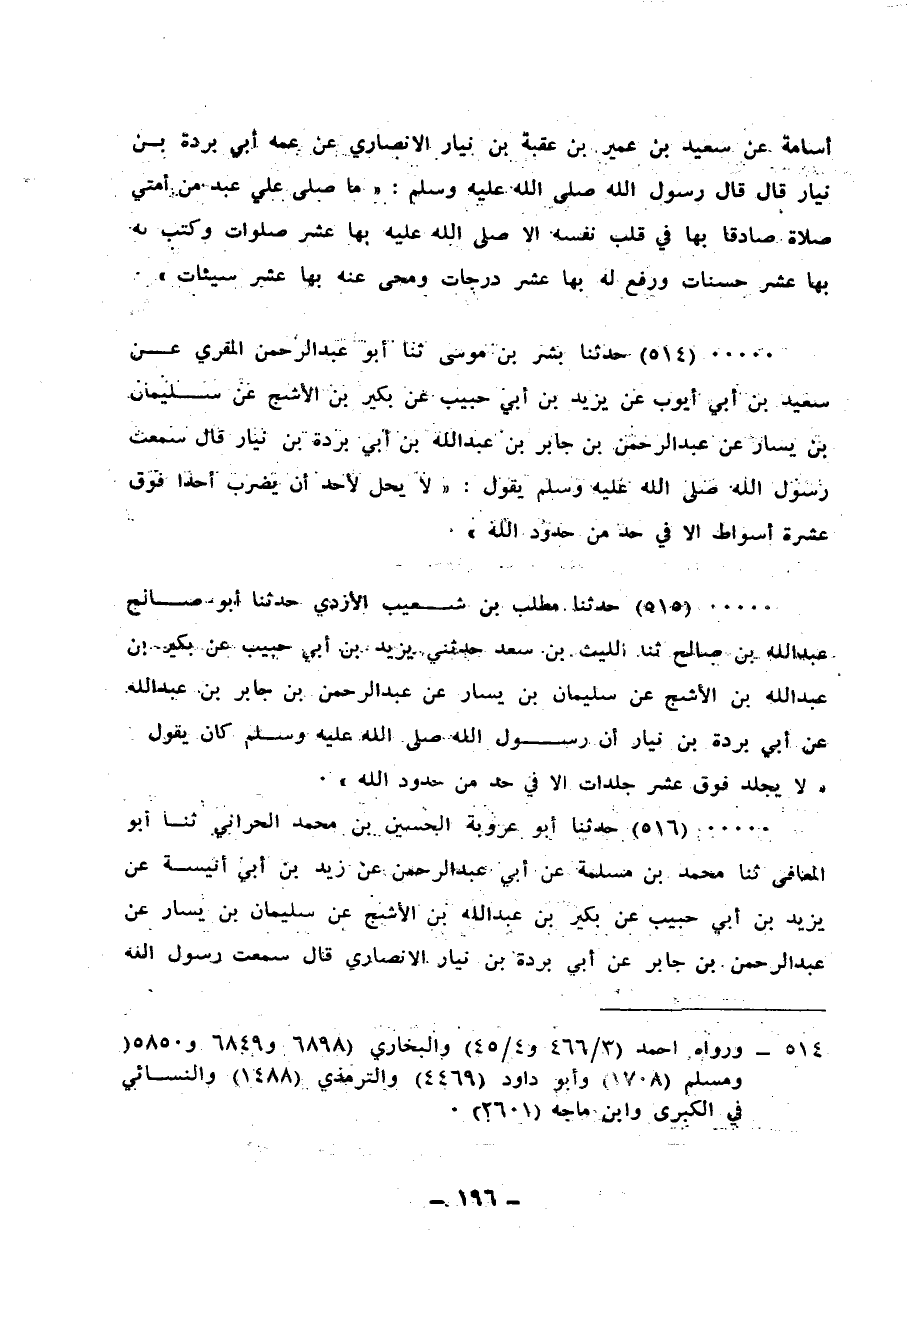 أسامة عن سعيد بن عمير بن عقبة بن نيار الانصاري عن عمه أبي بردة بـن
نيار قال قال رسول الله صلى الله عليه وسلم : « ما صلى علي عبد من أمتي
صلاة صادقا بها في قلب نفسه الا صلى الله عليه بها عشر صلوات وكتب له
بها عشر حسنات ورفع له بها عشر درجات ومحى عنه بها عشر سيئات » ٠
٠٠٠٠٠ (٥١٤) حدثنا بشر بن موسى ثنا أبو عبدالرحمن المقري عـــن
سعيد بن أبي أيوب عن يزيد بن أبي حبيب عن بكير بن الأشج عن ســـليمان
بن يسار عن عبدالرحمن بن جابر بن عبدالله بن أبي بردة بن نيار قال سمعت
رسول الله صلى الله عليه وسلم يقول : « لا يحل لأحد أن يضرب أحدا فوق
عشرة أسواط الا في حد من حدود الله » ٠
٠٠٠٠٠ (٥١٥) حدثنا مطلب بن شـــعيب الأزدي حدثنا أبو صـــالح
عبدالله بن صالح ثنا الليث بن سعد حدثني يزيد بن أبي حبيب عن بكير بن
عبدالله بن الأشج عن سليمان بن يسار عن عبدالرحمن بن جابر بن عبدالله
عن أبي بردة بن نيار أن رســـول الله صلى الله عليه وســلم كان يقول
« لا يجلد فوق عشر جلدات الا في حد من حدود الله » ٠
٠٠٠٠٠ (٥١٦) حدثنا أبو عروبة الحسين بن محمد الحراني ثنــا أبو
المعافى ثنا محمد بن مسلمة عن أبي عبدالرحمن عن زيد بن أبي أنيســة عن
يزيد بن أبي حبيب عن بكير بن عبدالله بن الأشج عن سليمان بن يسار عن
عبدالرحمن بن جابر عن أبي بردة بن نيار الانصاري قال سمعت رسول الله
٥١٤ ــ ورواه احمد (٤٦٦/٣ و٤٥/٤) والبخاري (٦٨٩٨ و٦٨٤٩ و٥٨٥٠(
ومسلم (١٧٠٨) وأبو داود (٤٤٦٩) والترمذي (١٤٨٨) والنســائي
في الكبرى وابن ماجه (٢٦٠١) ٠
ــ ١٩٦ ــ